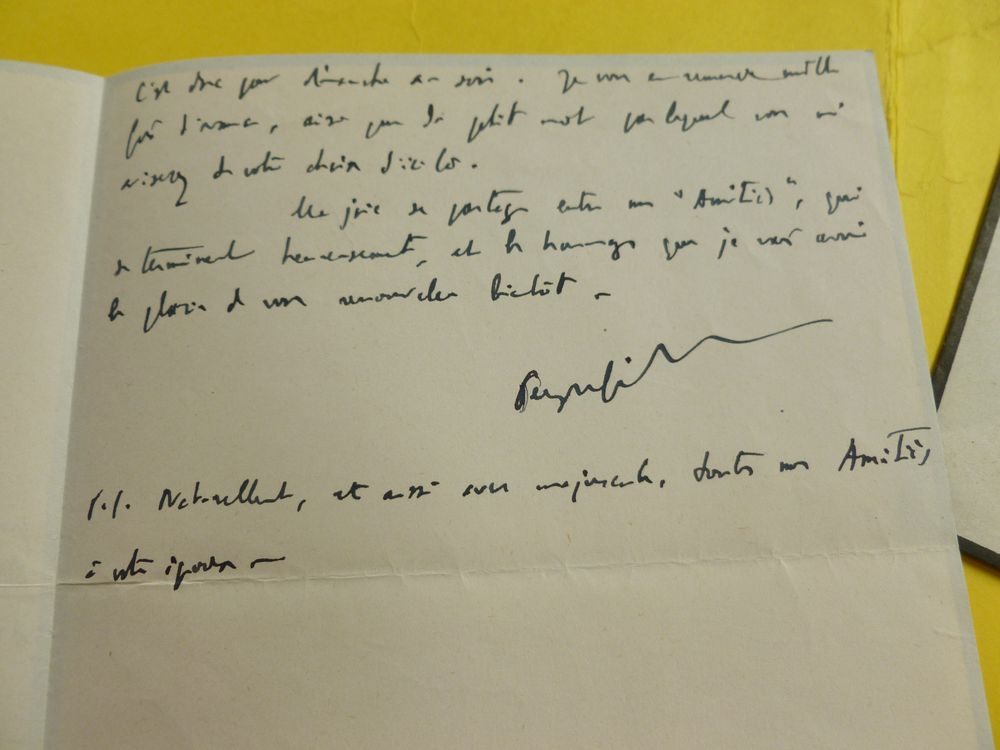 C'est donc pour dimanche au soir. Je vous en remercie mille
fois d'avance, ainsi que du petit mot par lequel vous
de votre d'ici là.
Ma joie se partage entre mes "Amitiés", qui
se terminent heureusement, et les hommages que je vais avoir
le plaisir de vous renouveler bientôt —
Peyrefitte
P.S. Naturellement, et aussi avec majuscule, toutes mes Amitiés,
à votre épouse —